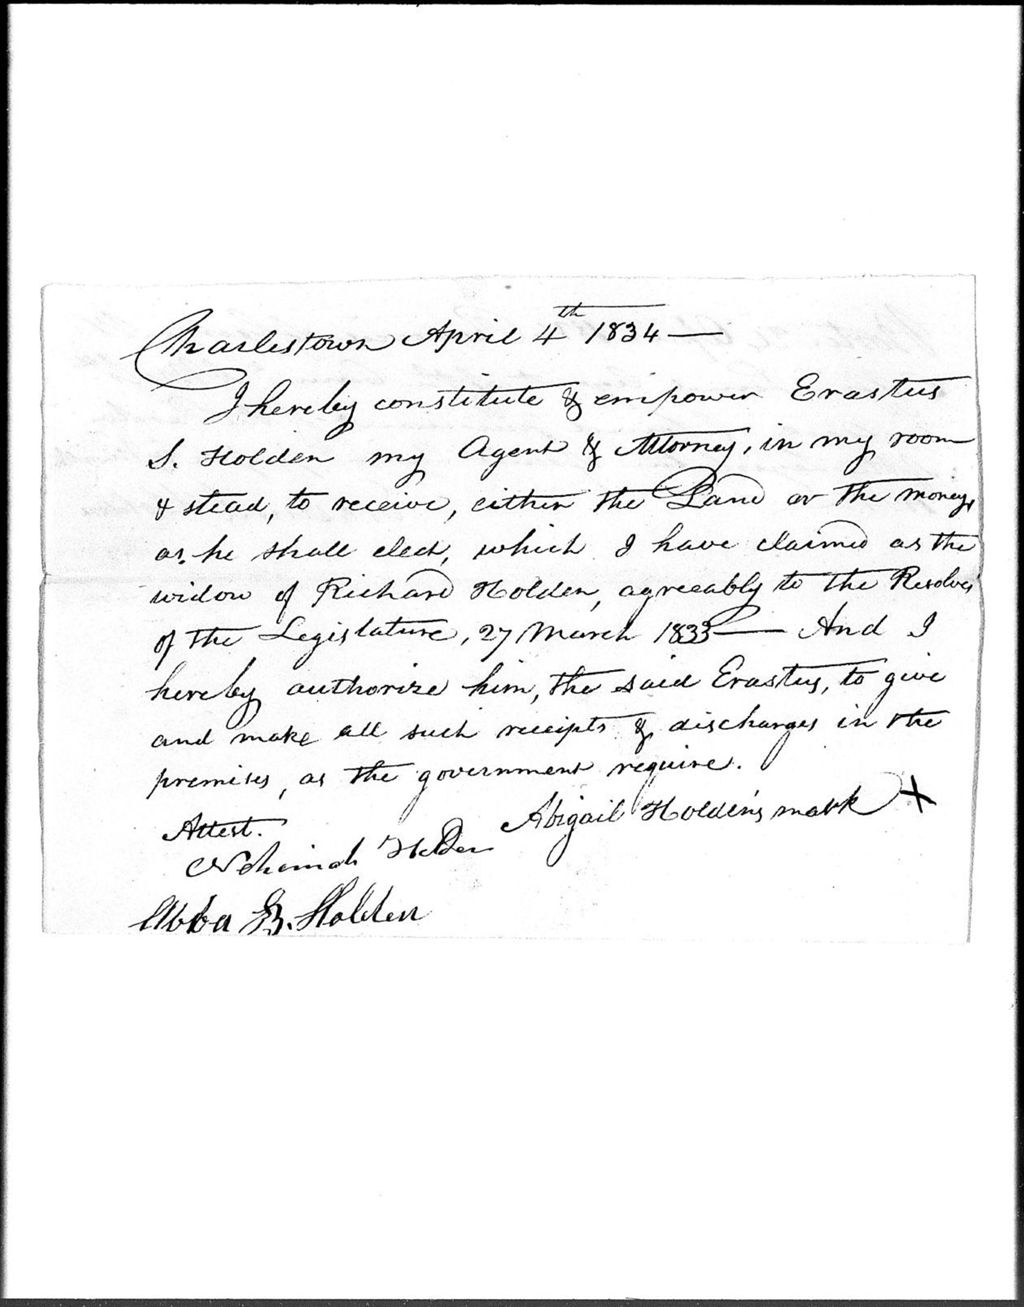 Charlestown April 4th 1834 —
I hereby constitute & empower Erastus
S. Holden my Agent & Attorney, in my room
& stead, to receive, either the Land or the money,
as he shall elect, which I have claimed as the
widow of Richard Holden, agreeably to the Resolves
of the Legislature, 27 March 1833 — And I
hereby authorize him, the said Erastus, to give
and make all such receipts & discharges in the
premises, as the government require.
Attest. Abigail Holden's mark X
Nehemiah Holden
Abba B. Holden